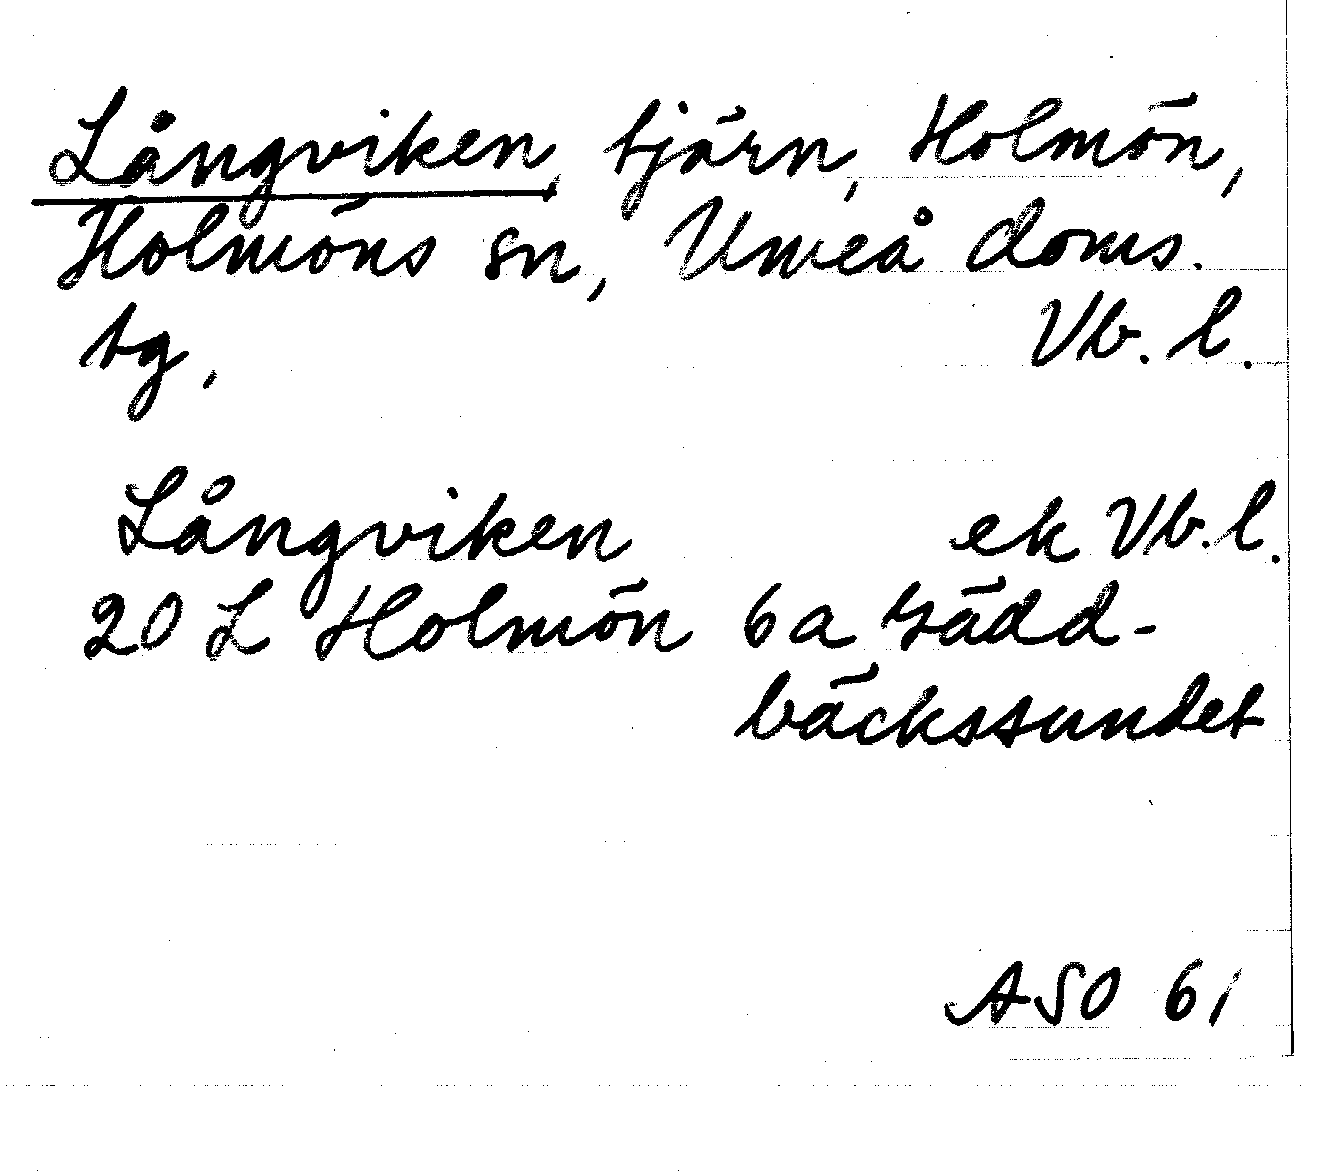 Långviken, tjärn, Holmön,
Holmöns sn, Umeå doms.
tg, Vb. l.
Långviken ek Vb. l.
20 L Holmön 6a Gädd-
bäckssundet
ASO 61